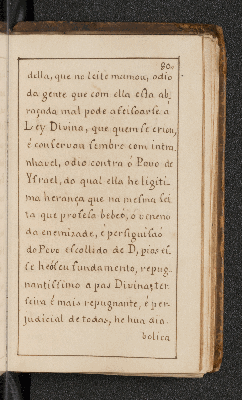 80.
della, que no leite mamou, odio
da gente que com ella esta ab,
raçada mal pode afeiſoarſe a
Ley Divina, que quem ſe criou,
é conſervou ſempre com
odio contra ó Povo de
Yſrael, da qual ella he legiti-
ma herança que na meſma ſei
ta que profeſa bebeó, ó veneno
da enemizade, é perſiguiſaó
do Povo eſcolhido de D, pois eſ-
ſe heóſeu fundamento, repug-
nantiſſimo a pas Divina; ter-
ſeira é mais repugnante, é per-
judicial de todas, he hua dia
bolica